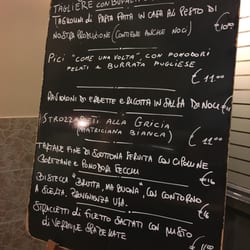 TAGLIERE CON BUFALA
TAGLIOLINI DI PASTA FATTA IN CASA AL PESTO DI
NOSTRA PRODUZIONE (CONTIENE ANCHE NOCI)
PICI "COME UNA VOLTA", CON POMODORI
PELATI E BURRATA PUGLIESE
€ 11.00
RAVIOLONI DI ERBETTE E RICOTTA IN SALSA DI NOCI
STROZZAPRETI ALLA GRICIA
(MATRICIANA BIANCA)
€ 11.00
TARTARE FINE DI SOTTONA SERVITA CON CIPOLLINE
BORETANE E POMODORI SECCHI
BISTECCA "BRUTTA, MA BUONA", CON CONTORNO
A SCELTA, PROVENIENZA USA.
STRACCETTI DI FILETTO SALTATI CON MISTO
DI VERDURE SPADELLATE